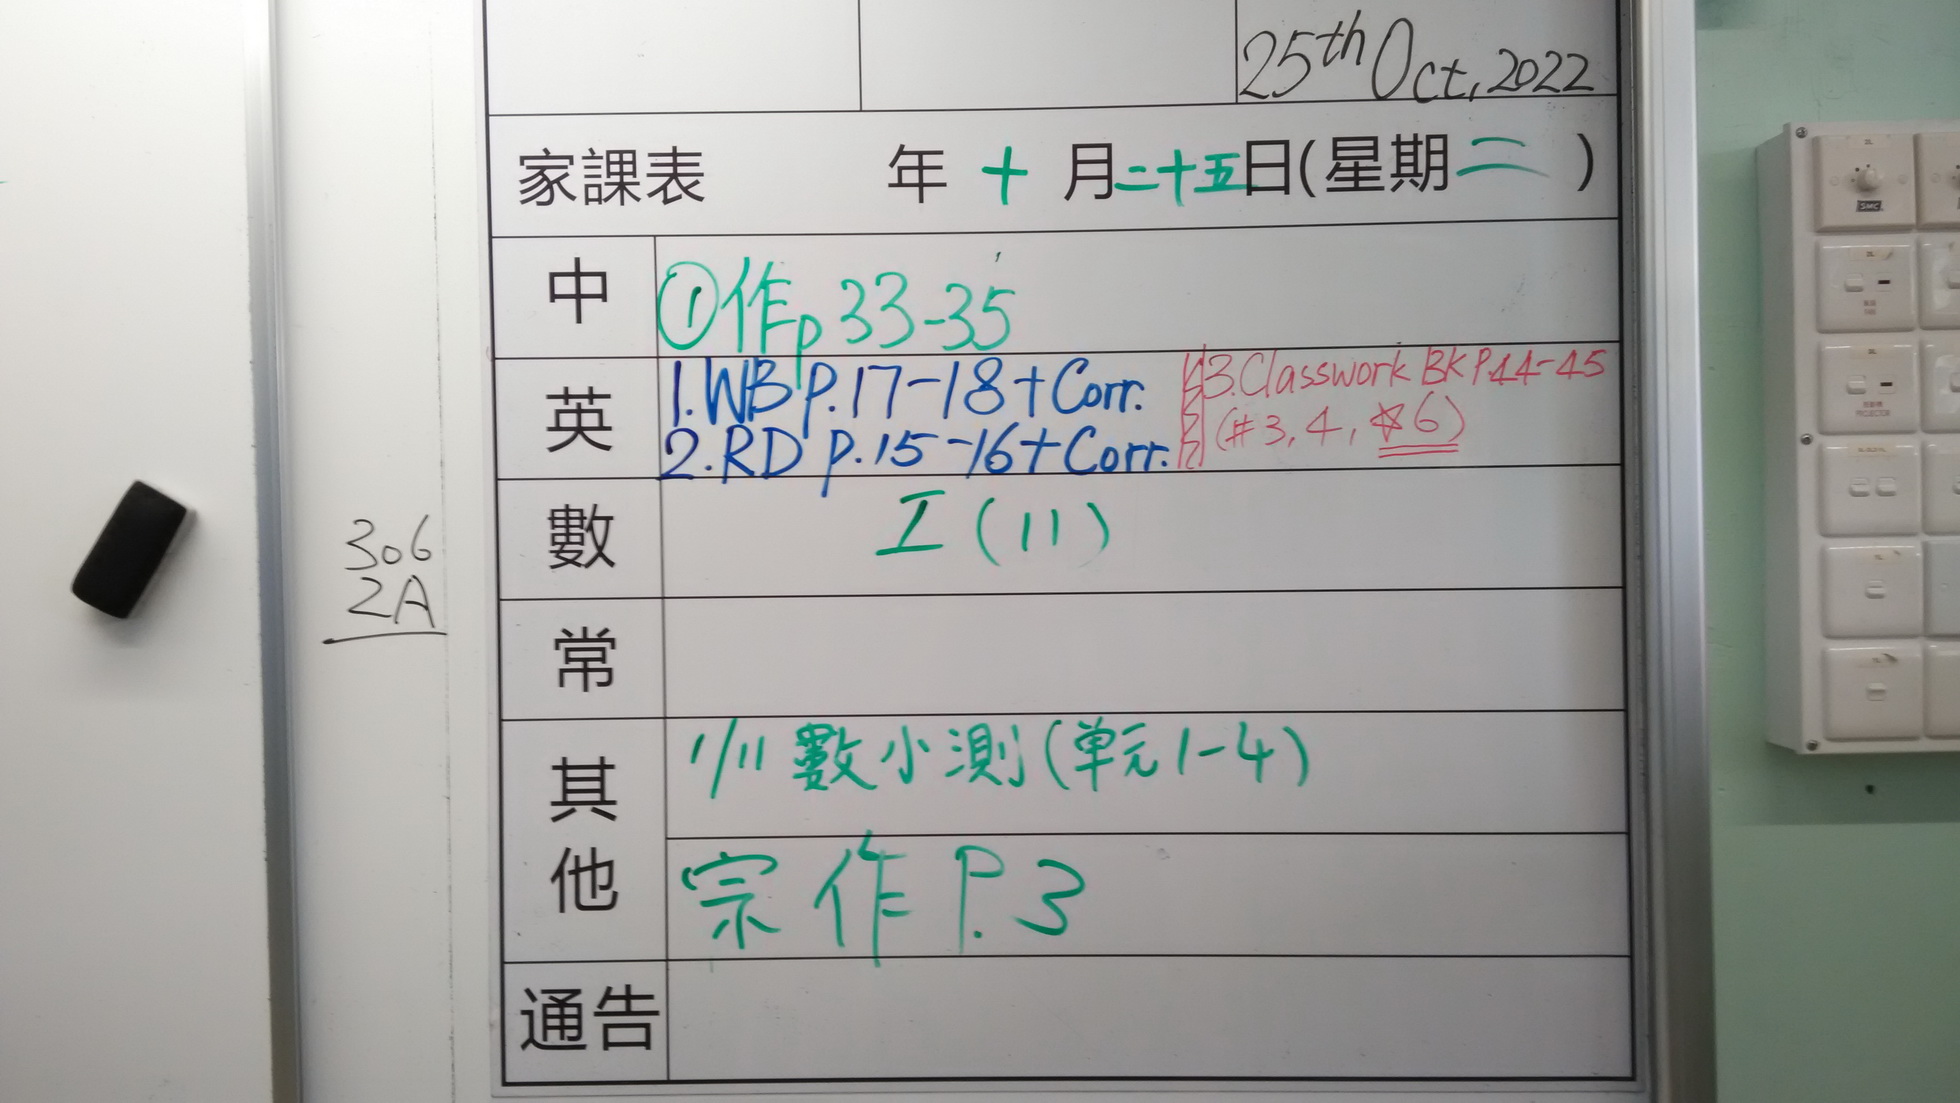 25th Oct, 2022
家課表 年 十 月 二十五日(星期二)
中 ①作p 33-35
英 1.WB p.17-18+Corr. 3.Classwork BK P.44-45
2.RD p.15-16+Corr. (#3, 4, ☆6)
數 工(11)
306
2A
常
其他 1/11 數小測(単元1-4)
宗作 P.3
通告
SMC
PROJECTOR